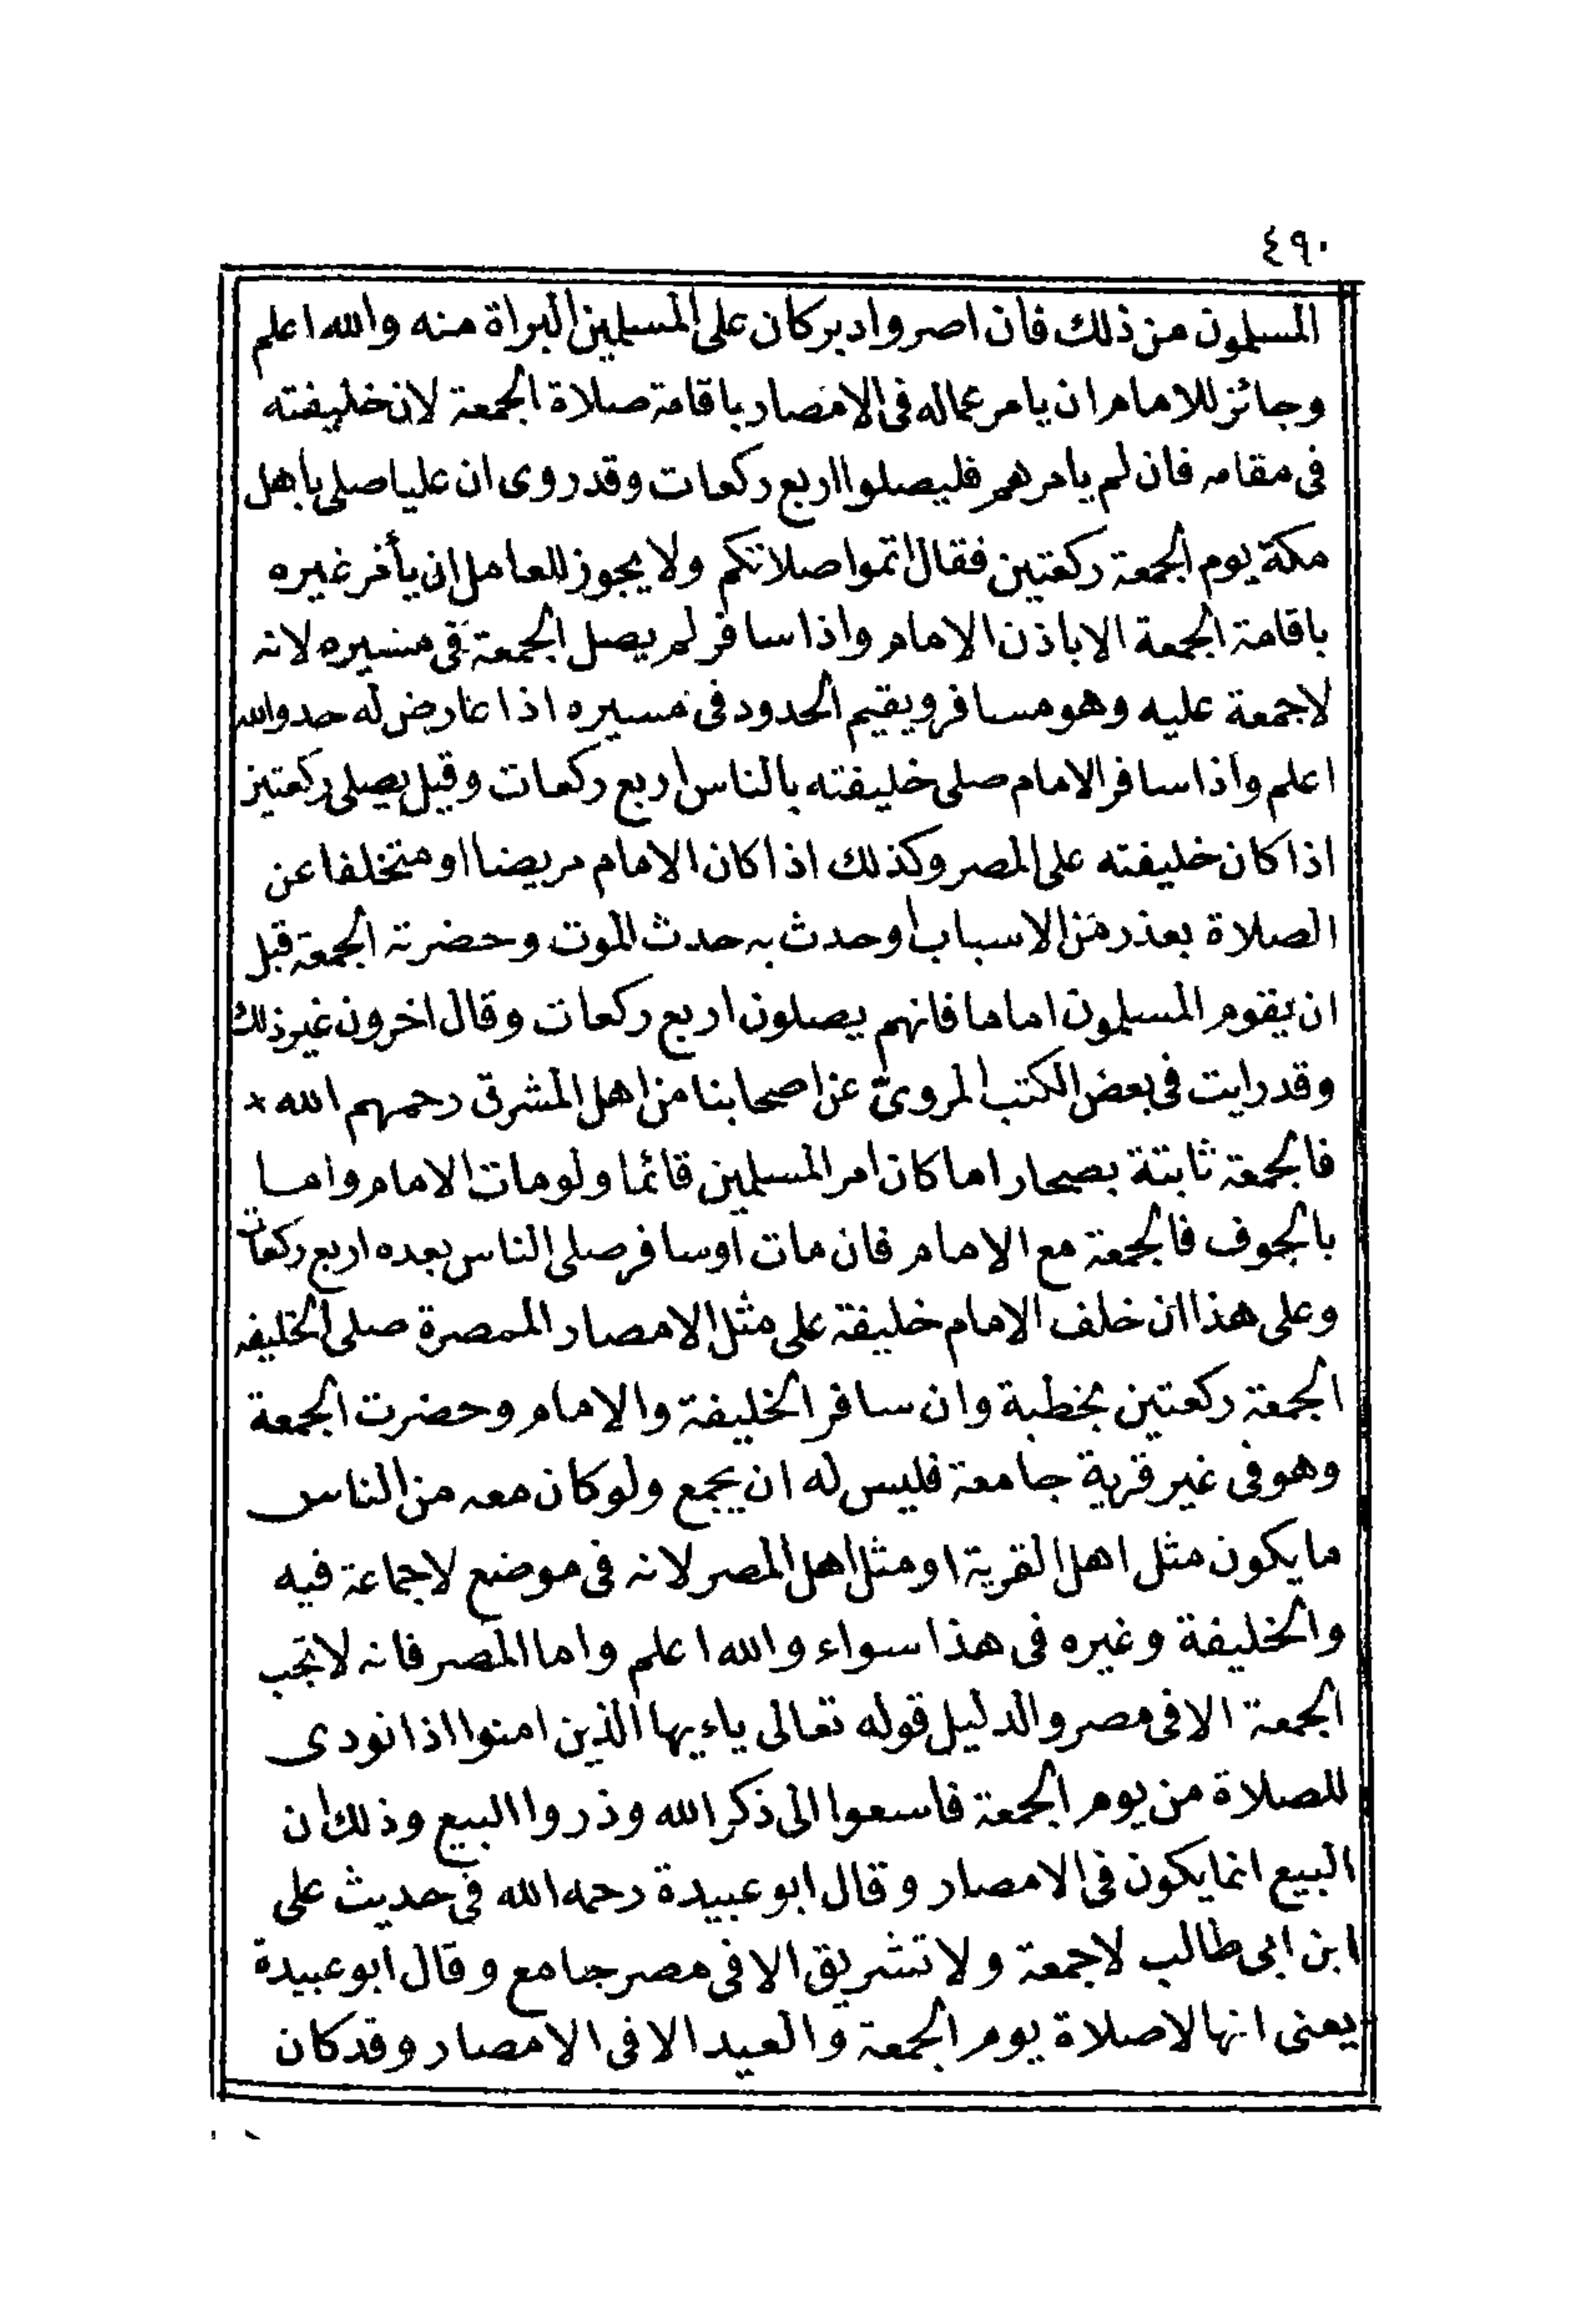 ٤٩٠
المسلمون من ذلك فان اصر وادبر كان على المسلمين البراة منه والله اعلم
وجائز للامام ان يامر عماله فى الامصار باقامة صلاة الجمعة لان خليفته
فى مقامه فان لم يامرهم فليصلوا اربع ركعات وقد روى ان عليا صلى بأهل
مكة يوم الجمعة ركعتين فقال اتموا صلاتكم ولا يجوز للعامل ان يأمر غيره
باقامة الجمعة الا باذن الامام واذا سافر لم يصل الجمعة فى مسيره لانه
لا جمعة عليه وهو مسافر ويقيم الحدود فى مسيره اذا عارض له حد والله
اعلم واذا سافر الامام صلى خليفته بالناس اربع ركعات وقيل يصلى ركعتين
اذا كان خليفته على المصر وكذلك اذا كان الامام مريضا او متخلفا عن
الصلاة بعذر من الاسباب او حدث به حدث الموت وحضرته الجمعة قبل
ان يقوم المسلمون اماما فانهم يصلون اربع ركعات وقال اخرون غير ذلك
وقد رايت فى بعض الكتب المروى عن اصحابنا من اهل المشرق رحمهم الله ×
فالجمعة ثابتة بصحار اما كان امر المسلمين قائما ولو مات الامام واما
بالجوف فالجمعة مع الامام فان مات او سافر صلى الناس بعده اربع ركعات
وعلى هذا ان خلف الامام خليفة على مثل الامصار الممصرة صلى الخليفه
الجمعة ركعتين بخطبة وان سافر الخليفة والامام وحضرت الجمعة
وهو فى غير قرية جامعة فليس له ان يجمع ولو كان معه من الناس
ما يكون مثل اهل القرية او مثل اهل المصر لانه فى موضع لا جماعة فيه
والخليفة وغيره فى هذا سواء والله اعلم واما المصر فانه لا تجب
الجمعة الا فى مصر والدليل قوله تعالى ياءيها الذين امنوا اذا نودى
للصلاة من يوم الجمعة فاسعوا الى ذكر الله وذروا البيع وذلك ان
البيع انما يكون فى الامصار وقال ابو عبيدة رحمه الله فى حديث على
ابن ابى طالب لا جمعة ولا تشريق الا فى مصر جامع وقال ابو عبيدة
يعنى انها لا صلاة يوم الجمعة والعيد الا فى الامصار وقد كان